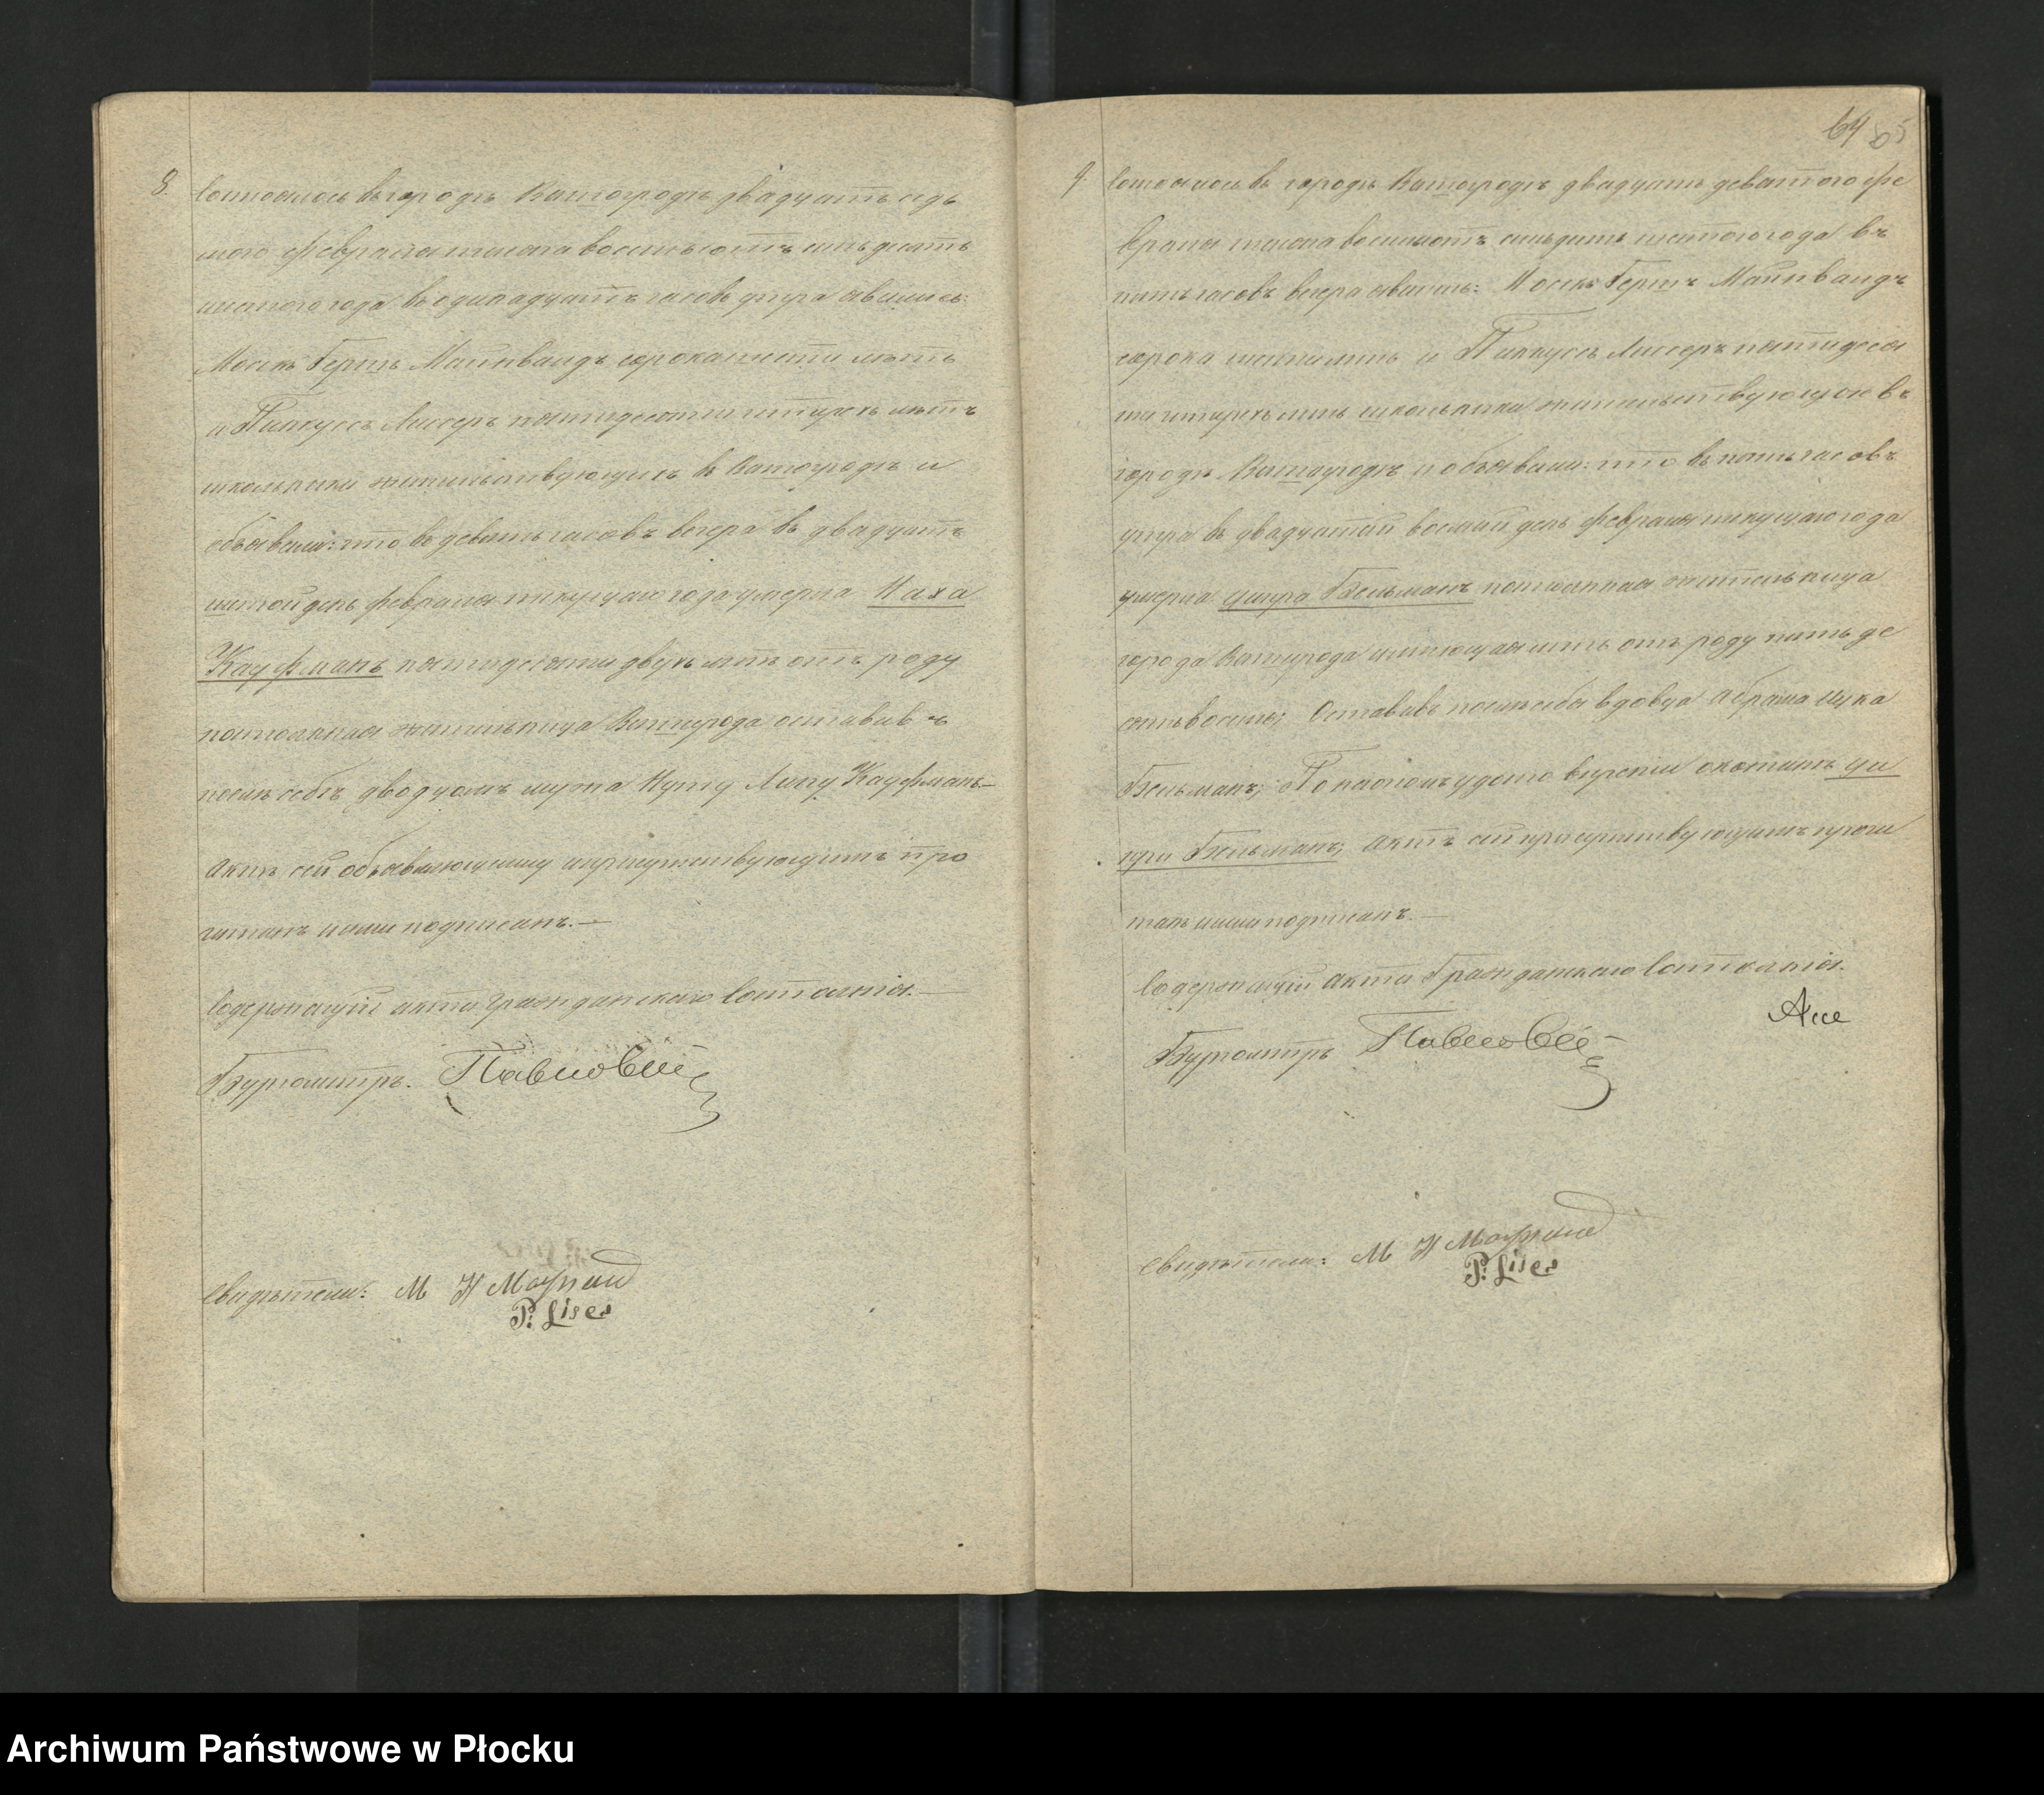 8.
Состоялось въ городѣ Вышогродѣ двадцать седь
мого Февраля тысяча восемьсотъ семьдесятъ
шестого года въ одинадцать часовъ утра явились:
Мосекъ Гершъ Майнвандъ сорокашести лѣтъ
и Пинкусъ Лиссеръ пятидесяти четырехъ лѣтъ
школьники жительствующіе въ Вышогродѣ и
объявили: что въ девять часовъ вечера въ двадцать
шестой день февраля текущаго года умерла Наха
Кауфманъ пятидесяти двухъ лѣтъ отъ роду
постоянная жительница Вышогрода оставивъ
послѣ себѣ мужа Кауфманъ—
Актъ сей объявляющимъ и присутствующимъ про
читанъ нами подписанъ.—
Содержащій акты гражданскаго Состоянія.—
Бургомистръ. Павловскій
Свидѣтели: М H Маѣнванд
P: Liser
64 65
9
Состоялось въ городѣ Вышогродѣ двадцать девятого фе
враля тысяча восемьсотъ семьдесятъ шестого года въ
пять часовъ вечера явились: Мосекъ Гершъ Майнвандъ
сорока шести лѣтъ и Пинкусъ Лиссеръ пятидеся
ти четырехъ лѣтъ школьники жительствующіе въ
городѣ Вышогродѣ и объявили: что въ пять часовъ
утра въ двадцатый восмый день февраля текущаго года
умерла Ципра Бельманъ постоянная жительница
города Вышгрода имѣющая лѣтъ отъ роду пятьде
сятъ восемь; Оставивъ послѣ себя вдовца Абрама Ицка
Бельманъ; По настоящемъ удостовѣреніи о кончинѣ Ци
при Бельманъ; Актъ сей присутствующимъ прочи
танъ нами подписанъ.—
Содержащій Акты Гражданскаго Состоянія.
Бургомистръ Павловскій
Свидѣтели: М H Маѣнванд
P: Liser